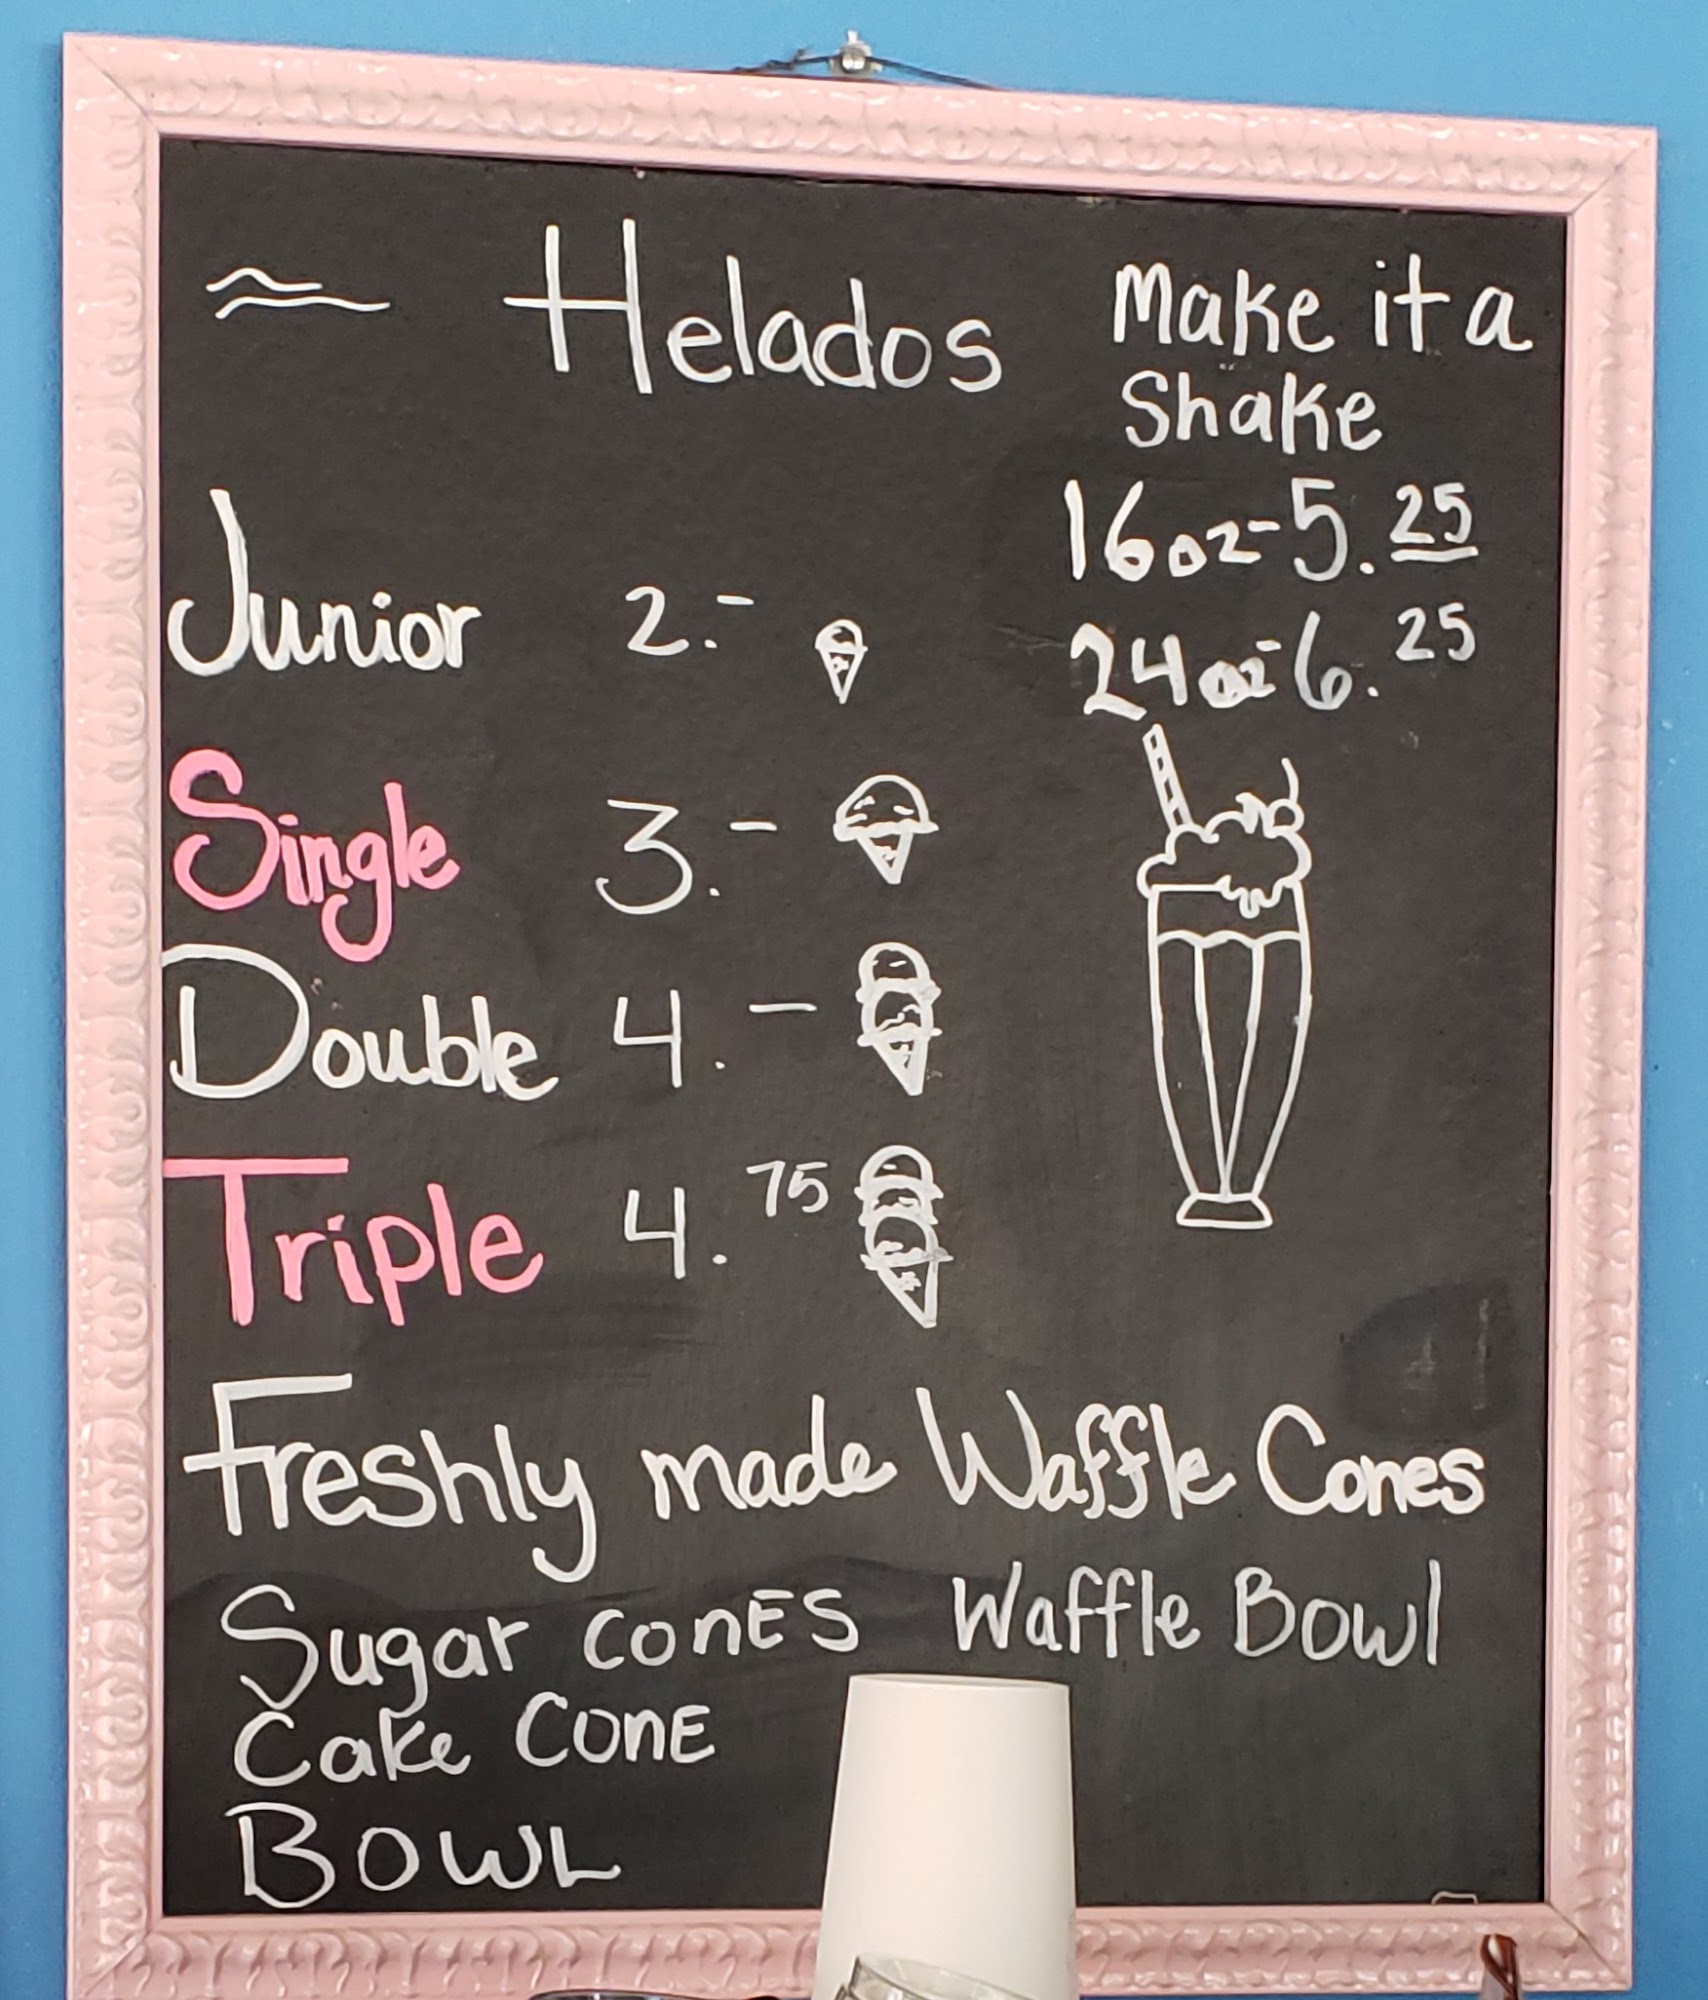 Helados
Make it a
Shake
16oz-5.25
24oz-6.25
Junior 2.-
Single 3.-
Double 4.-
Triple 4.75
Freshly made Waffle Cones
Sugar conES Waffle Bowl
Cake CONE
BOWL